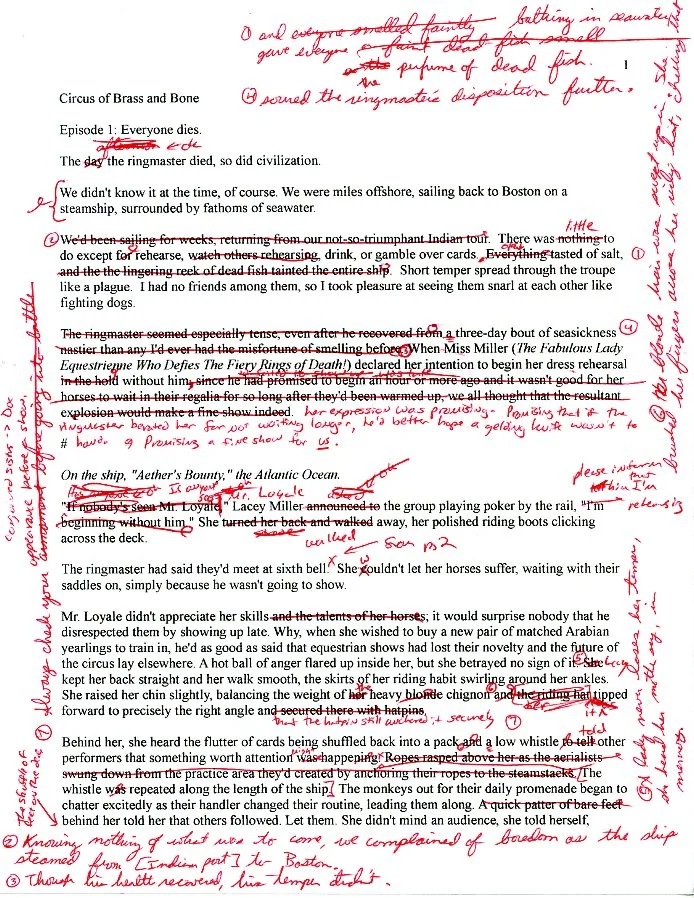 ① and everyone smelled faintly bathing in seawater
gave everyone a faint dead fish smell
perfume of dead fish.
④ soured the ringmaster's disposition further.
1
Circus of Brass and Bone
Episode 1: Everyone dies.
afternoon
The day the ringmaster died, so did civilization.
We didn't know it at the time, of course. We were miles offshore, sailing back to Boston on a
steamship, surrounded by fathoms of seawater.
little
② We'd been sailing for weeks, returning from our not-so-triumphant Indian tour. There was nothing to
do except for rehearse, watch others rehearsing, drink, or gamble over cards. Everything tasted of salt, ①
and the the lingering reek of dead fish tainted the entire ship. Short temper spread through the troupe
like a plague. I had no friends among them, so I took pleasure at seeing them snarl at each other like
fighting dogs.
The ringmaster seemed especially tense, even after he recovered from a three-day bout of seasickness ④
nastier than any I'd ever had the misfortune of smelling before. ③ When Miss Miller (The Fabulous Lady
Equestrienne Who Defies The Fiery Rings of Death!) declared her intention to begin her dress rehearsal
in the hold without him, since he had promised to begin an hour or more ago and it wasn't good for her
horses to wait in their regalia for so long after they'd been warmed up, we all thought that the resultant
explosion would make a fine show indeed. her expression was promising. Promising that if the
ringmaster berated her for not waiting longer, he'd better hope a gelding knife wasn't to
# hand. Promising a fine show for us.
On the ship, "Aether's Bounty," the Atlantic Ocean.
please inform
"If nobody's seen Mr. Loyale," Lacey Miller announced to the group playing poker by the rail, "I'm
beginning without him." She turned her back and walked away, her polished riding boots clicking
across the deck.
walked
The ringmaster had said they'd meet at sixth bell. She couldn't let her horses suffer, waiting with their
saddles on, simply because he wasn't going to show.
Mr. Loyale didn't appreciate her skills and the talents of her horses; it would surprise nobody that he
disrespected them by showing up late. Why, when she wished to buy a new pair of matched Arabian
yearlings to train in, he'd as good as said that equestrian shows had lost their novelty and the future of
the circus lay elsewhere. A hot ball of anger flared up inside her, but she betrayed no sign of it. She
kept her back straight and her walk smooth, the skirts of her riding habit swirling around her ankles.
She raised her chin slightly, balancing the weight of her heavy blonde chignon and the riding hat tipped
forward to precisely the right angle and secured there with hatpins.
that the hatpin still anchored it securely ⑦
told
Behind her, she heard the flutter of cards being shuffled back into a pack and a low whistle to tell other
performers that something worth attention was happening. Ropes rasped above her as the aerialists
swung down from the practice area they'd created by anchoring their ropes to the steamstacks. The
whistle was repeated along the length of the ship. The monkeys out for their daily promenade began to
chatter excitedly as their handler changed their routine, leading them along. A quick patter of bare feet
behind her told her that others followed. Let them. She didn't mind an audience, she told herself,
② Knowing nothing of what was to come, we complained of boredom as the ship
steamed from [Indian port] to Boston.
③ Though his health recovered, his temper didn't.
conjoined sister -> Doc
Always check your appearance before a show.
armament before going into battle
A lady never loses her temper,
she heard her mother say, in
memory.